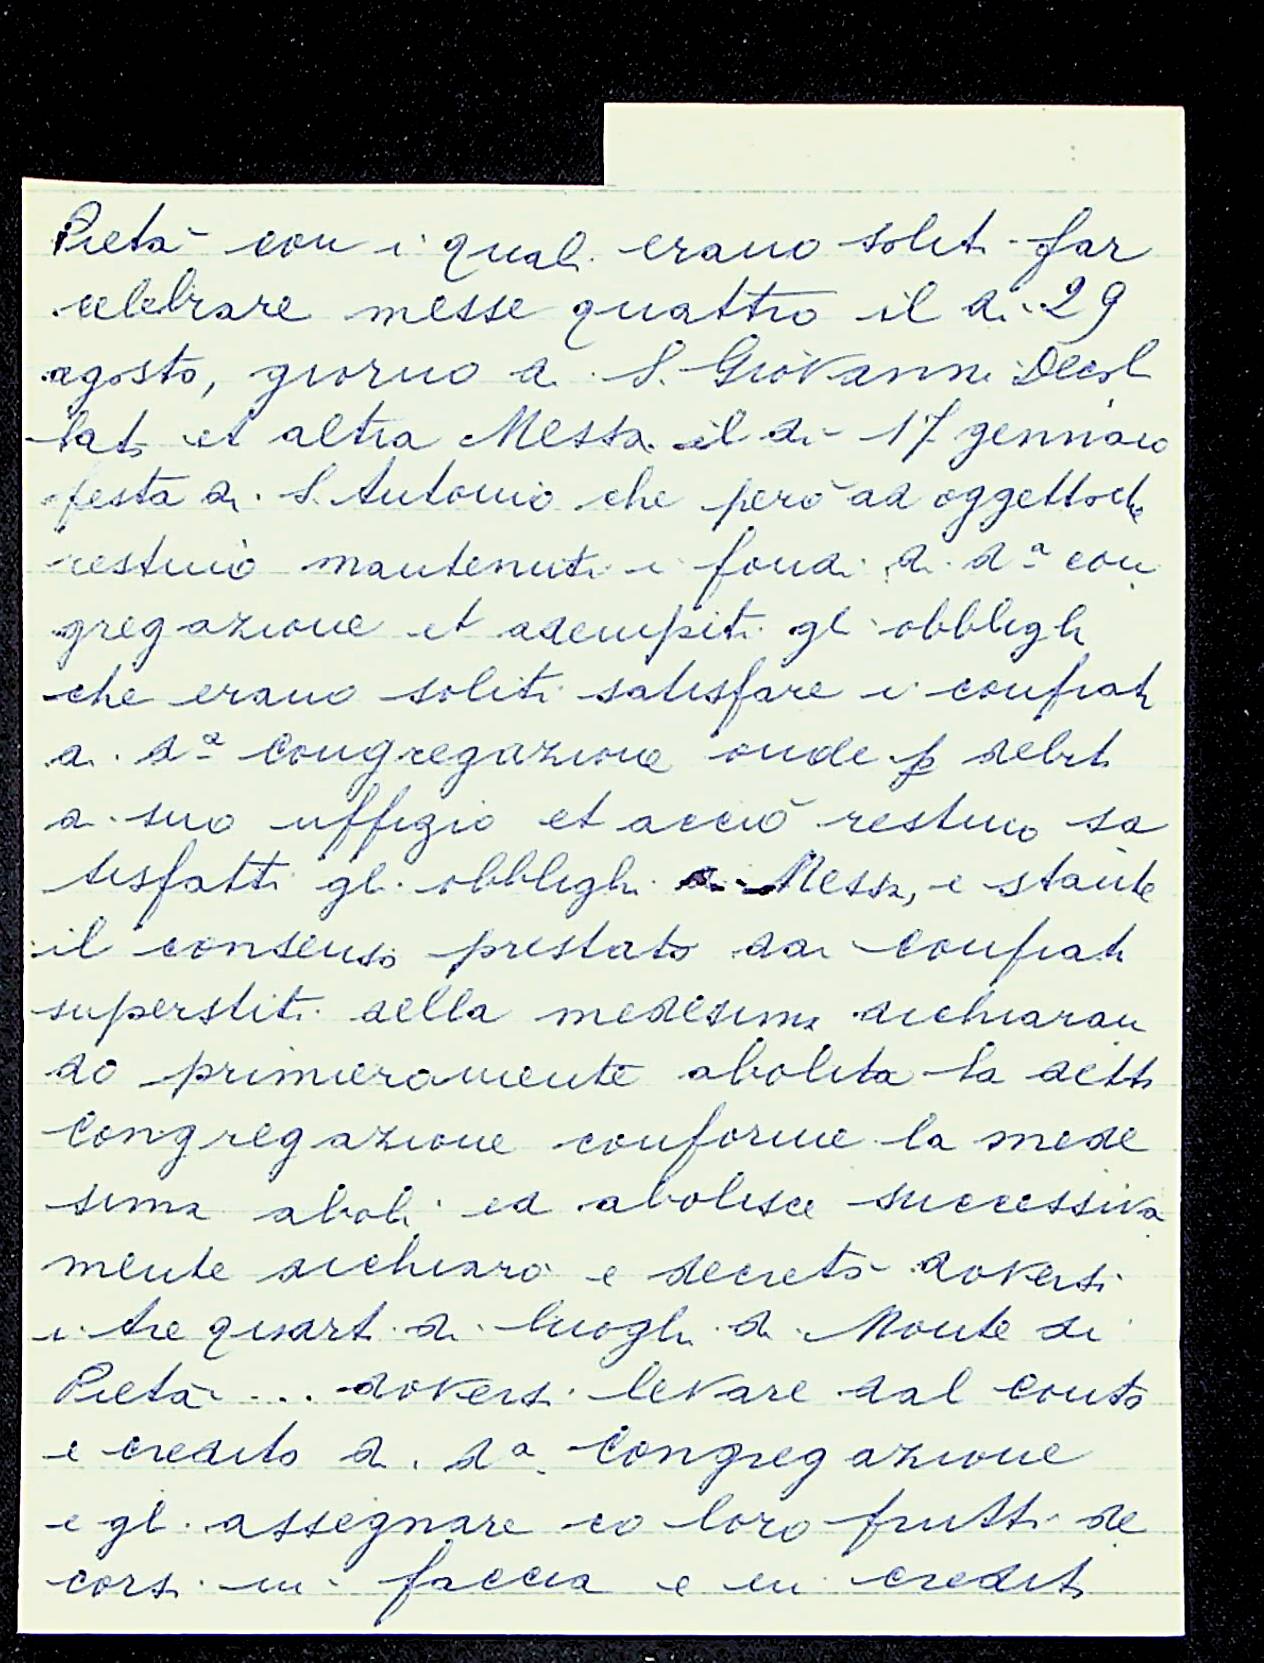 Pietà con i quali erano soliti far
celebrare messe quattro il dì 29
agosto, giorno di S. Giovanni Decol
lato et altra Messa il dì 17 gennaio
festa di S. Antonio che però ad oggetto che
restino mantenuti i fondi di d.ª con
gregazione et adempiti gli obblighi
che erano soliti satisfare i confrati
di d.ª Congregazione onde p debito
di suo uffizio et acciò restino sa
tisfatti gli obblighi di Messa, e stante
il consenso prestato dai confrati
superstiti della medesima dichiaran
do primieramente abolita la detta
Congregazione conforme la mede
sima abolì ed abolisce successiva
mente dichiarò e decretò doversi
i tre quarti di luoghi di Monte di
Pietà ... doversi levare dal conto
e credito di d.ª Congregazione
e gli assegnare co loro frutti de
corsi in faccia e in credito